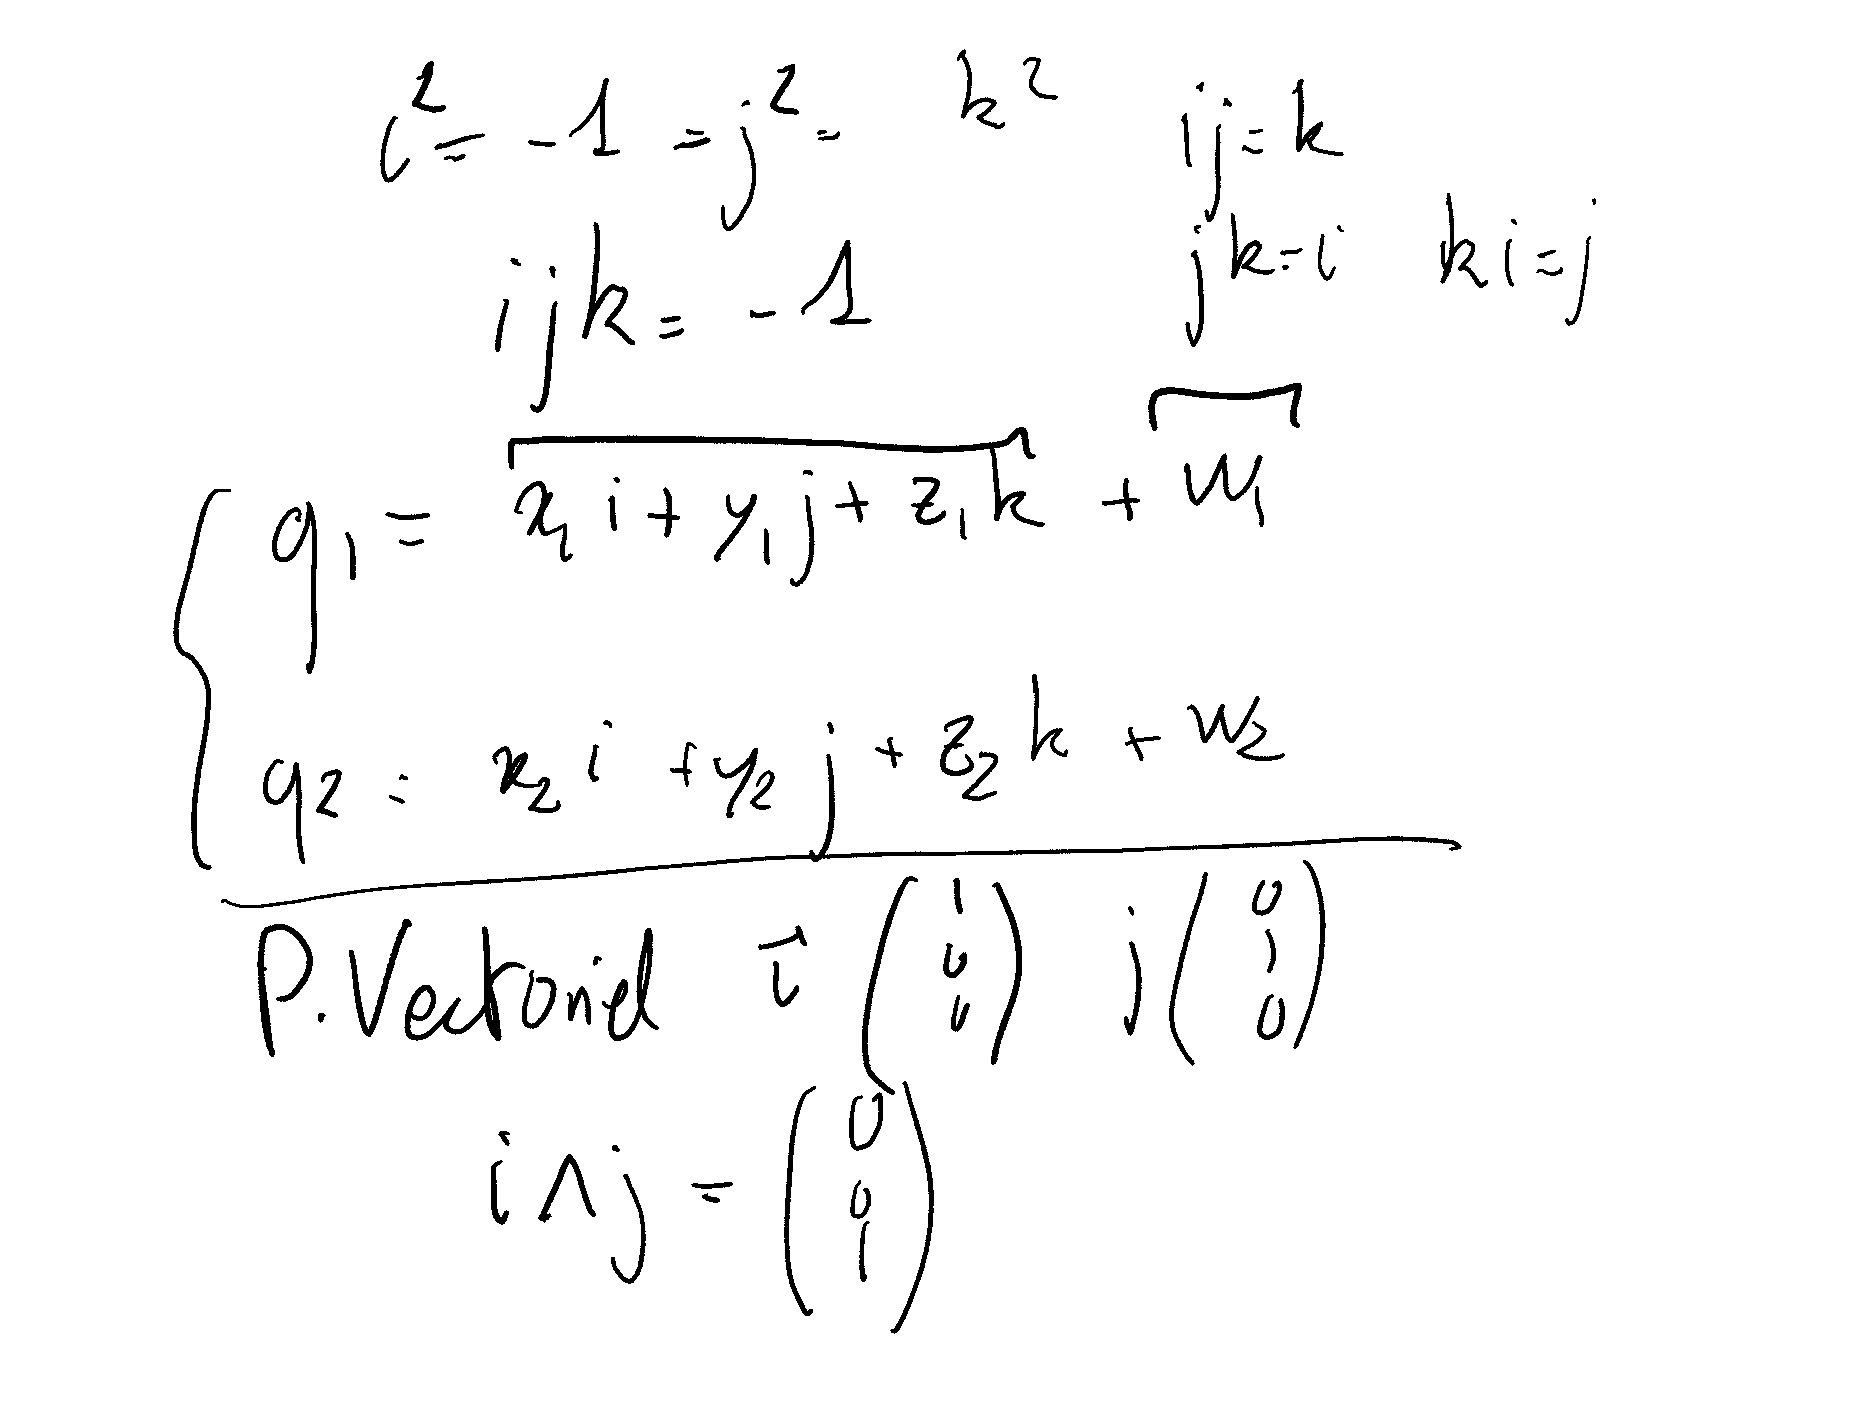 i² = -1 = j² = k² ij = k
jk = i ki = j
ijk = -1
q₁ = x₁ i + y₁ j + z₁ k + w₁
q₂ = x₂ i + y₂ j + z₂ k + w₂
P. Vectoriel i⃗ (1 0 0) j (0 1 0)
i ∧ j = (0 0 1)